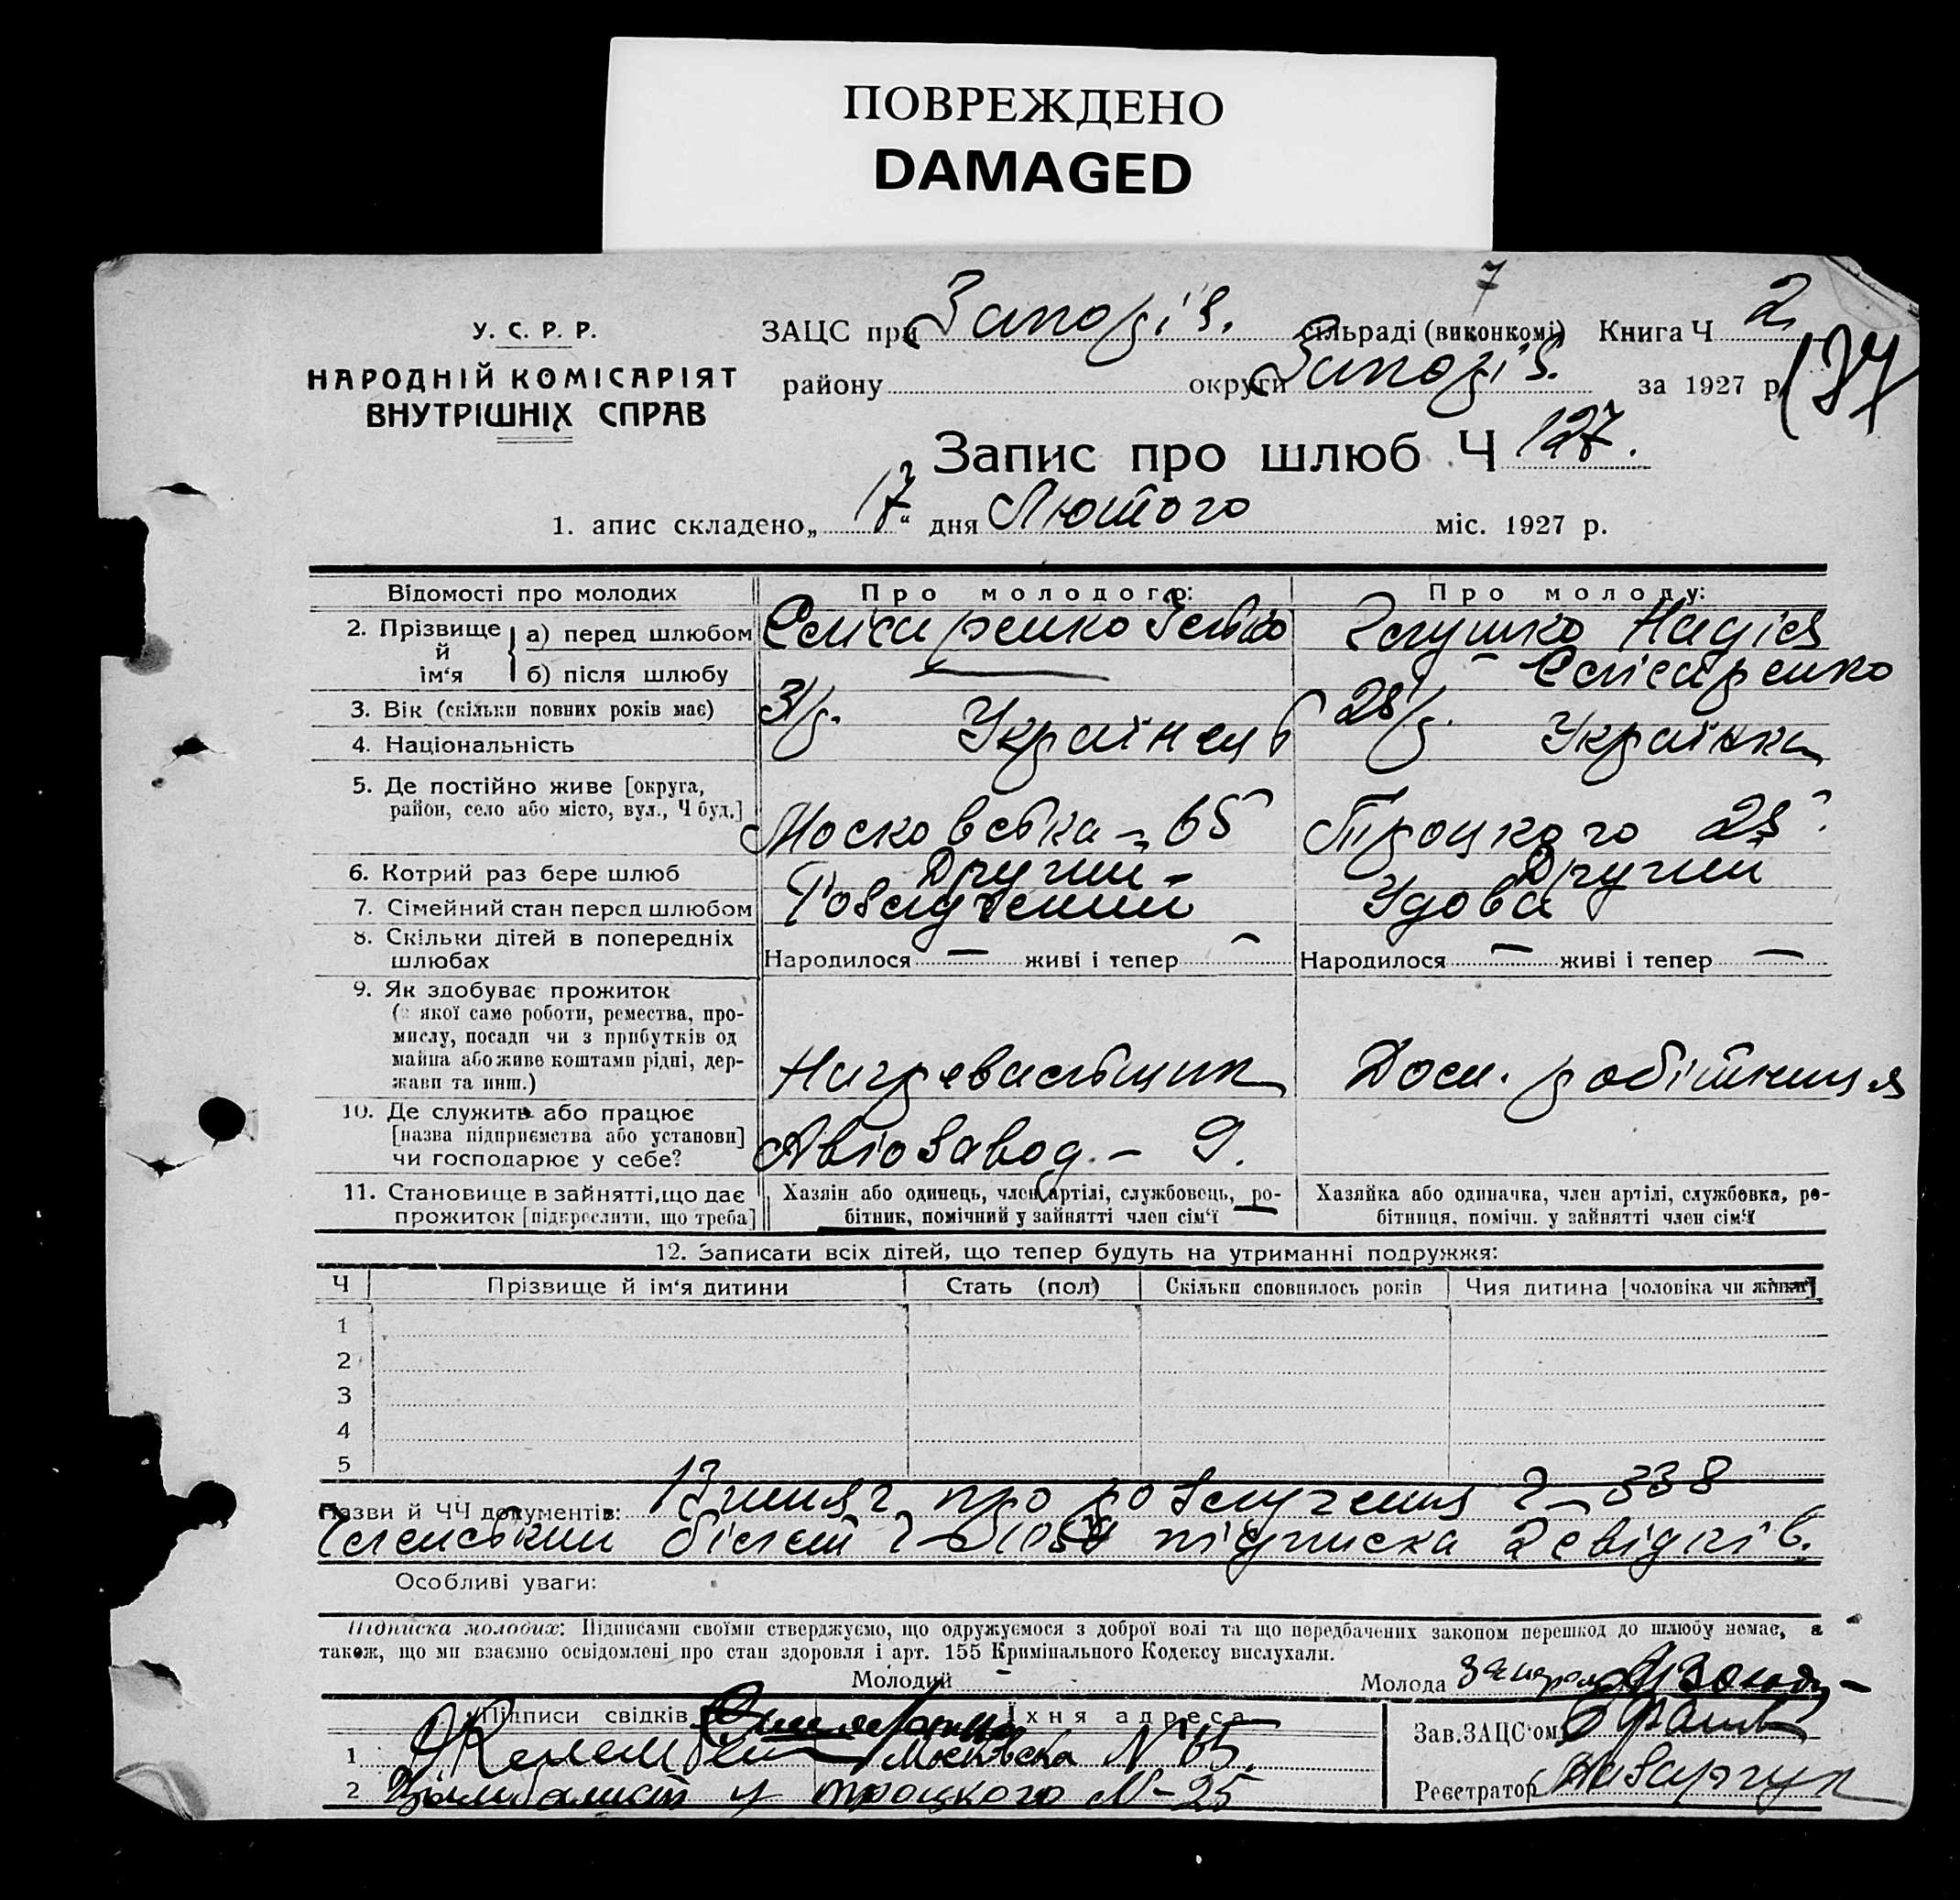 ПОВРЕЖДЕНО
DAMAGED
7
У. С. Р. Р.
НАРОДНІЙ КОМІСАРІЯТ
ВНУТРІШНІХ СПРАВ
ЗАЦС при Запоріз. сільраді (виконкомі) Книга Ч 2
району округи Запоріз. за 1927 р.
Запис про шлюб Ч 127.
1. апис складено „17“ дня Лютого міс. 1927 р.
Відомості про молодих Про молодого: Про молоду:
2. Прізвище й ім‘я а) перед шлюбом Єлісаренко Глушко Надія
б) після шлюбу — Єлісаренко
3. Вік (скільки повних років має) 31 р. 28 р.
4. Національність Українець Українка
5. Де постійно живе [округа, район, село або місто, вул., Ч буд.] Московська - 65 Троцкого 25
6. Котрий раз бере шлюб Другий - Другий
7. Сімейний стан перед шлюбом Розлучений Удова
8. Скільки дітей в попередніх шлюбах Народилося — живі і тепер — Народилося — живі і тепер —
9. Як здобуває прожиток
(з якої саме роботи, ремества, про-
мислу, посади чи з прибутків од
майна або живе коштами рідні, дер-
жави та инш.) Нагревальщик Дом. робітниця
10. Де служить або працює
[назва підприємства або установи]
чи господарює у себе? Авіозавод - 9.
11. Становище в зайнятті, що дає
прожиток [підкреслити, що треба]
Хазяін або одинець, член артілі, службовець, ро-
бітник, помічний у зайнятті член сім‘ї
Хазяйка або одиначка, член артілі, службовка, ро-
бітниця, помічн. у зайнятті член сім‘ї
12. Записати всіх дітей, що тепер будуть на утриманні подружжя:
Ч Прізвище й ім‘я дитини Стать (пол) Скільки сповнилось років Чия дитина [чоловіка чи жінки]
1
2
3
4
5
Назви й ЧЧ документів: Витяг про розлучення Ч 338
Членський білет Ч підписка 2 свідків.
Особливі уваги:
Підписка молодих: Підписами своїми стверджуємо, що одружуємося з доброї волі та що передбачених законом перешкод до шлюбу немає, а
також, що ми взаємно освідомлені про стан здоровля і арт. 155 Кримінального Кодексу вислухали.
Молодий Молода
Підписи свідків Їхня адреса Зав. ЗАЦС‘ом
1 Московска N 65.
2 троцкого N-25 Реєстратор